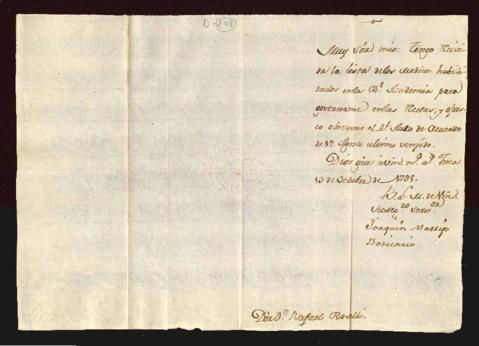 D-203
Muy Sor. mio: Tengo Recivi-
da la lista de los Medicos habili-
tados en la Rl. Academia para
governarme en las Recetas; y ofrez-
co observar el Rl. Auto de Acuerdo
de 17. Agosto ultimo
Dios gue. a Vmd. ms. as.
13 de Octubre de 1795.
B. L. M. de Vm.
Su Servor.
Joaquin Massip
Boticario
Dor. Dn. Rafael Rosell.